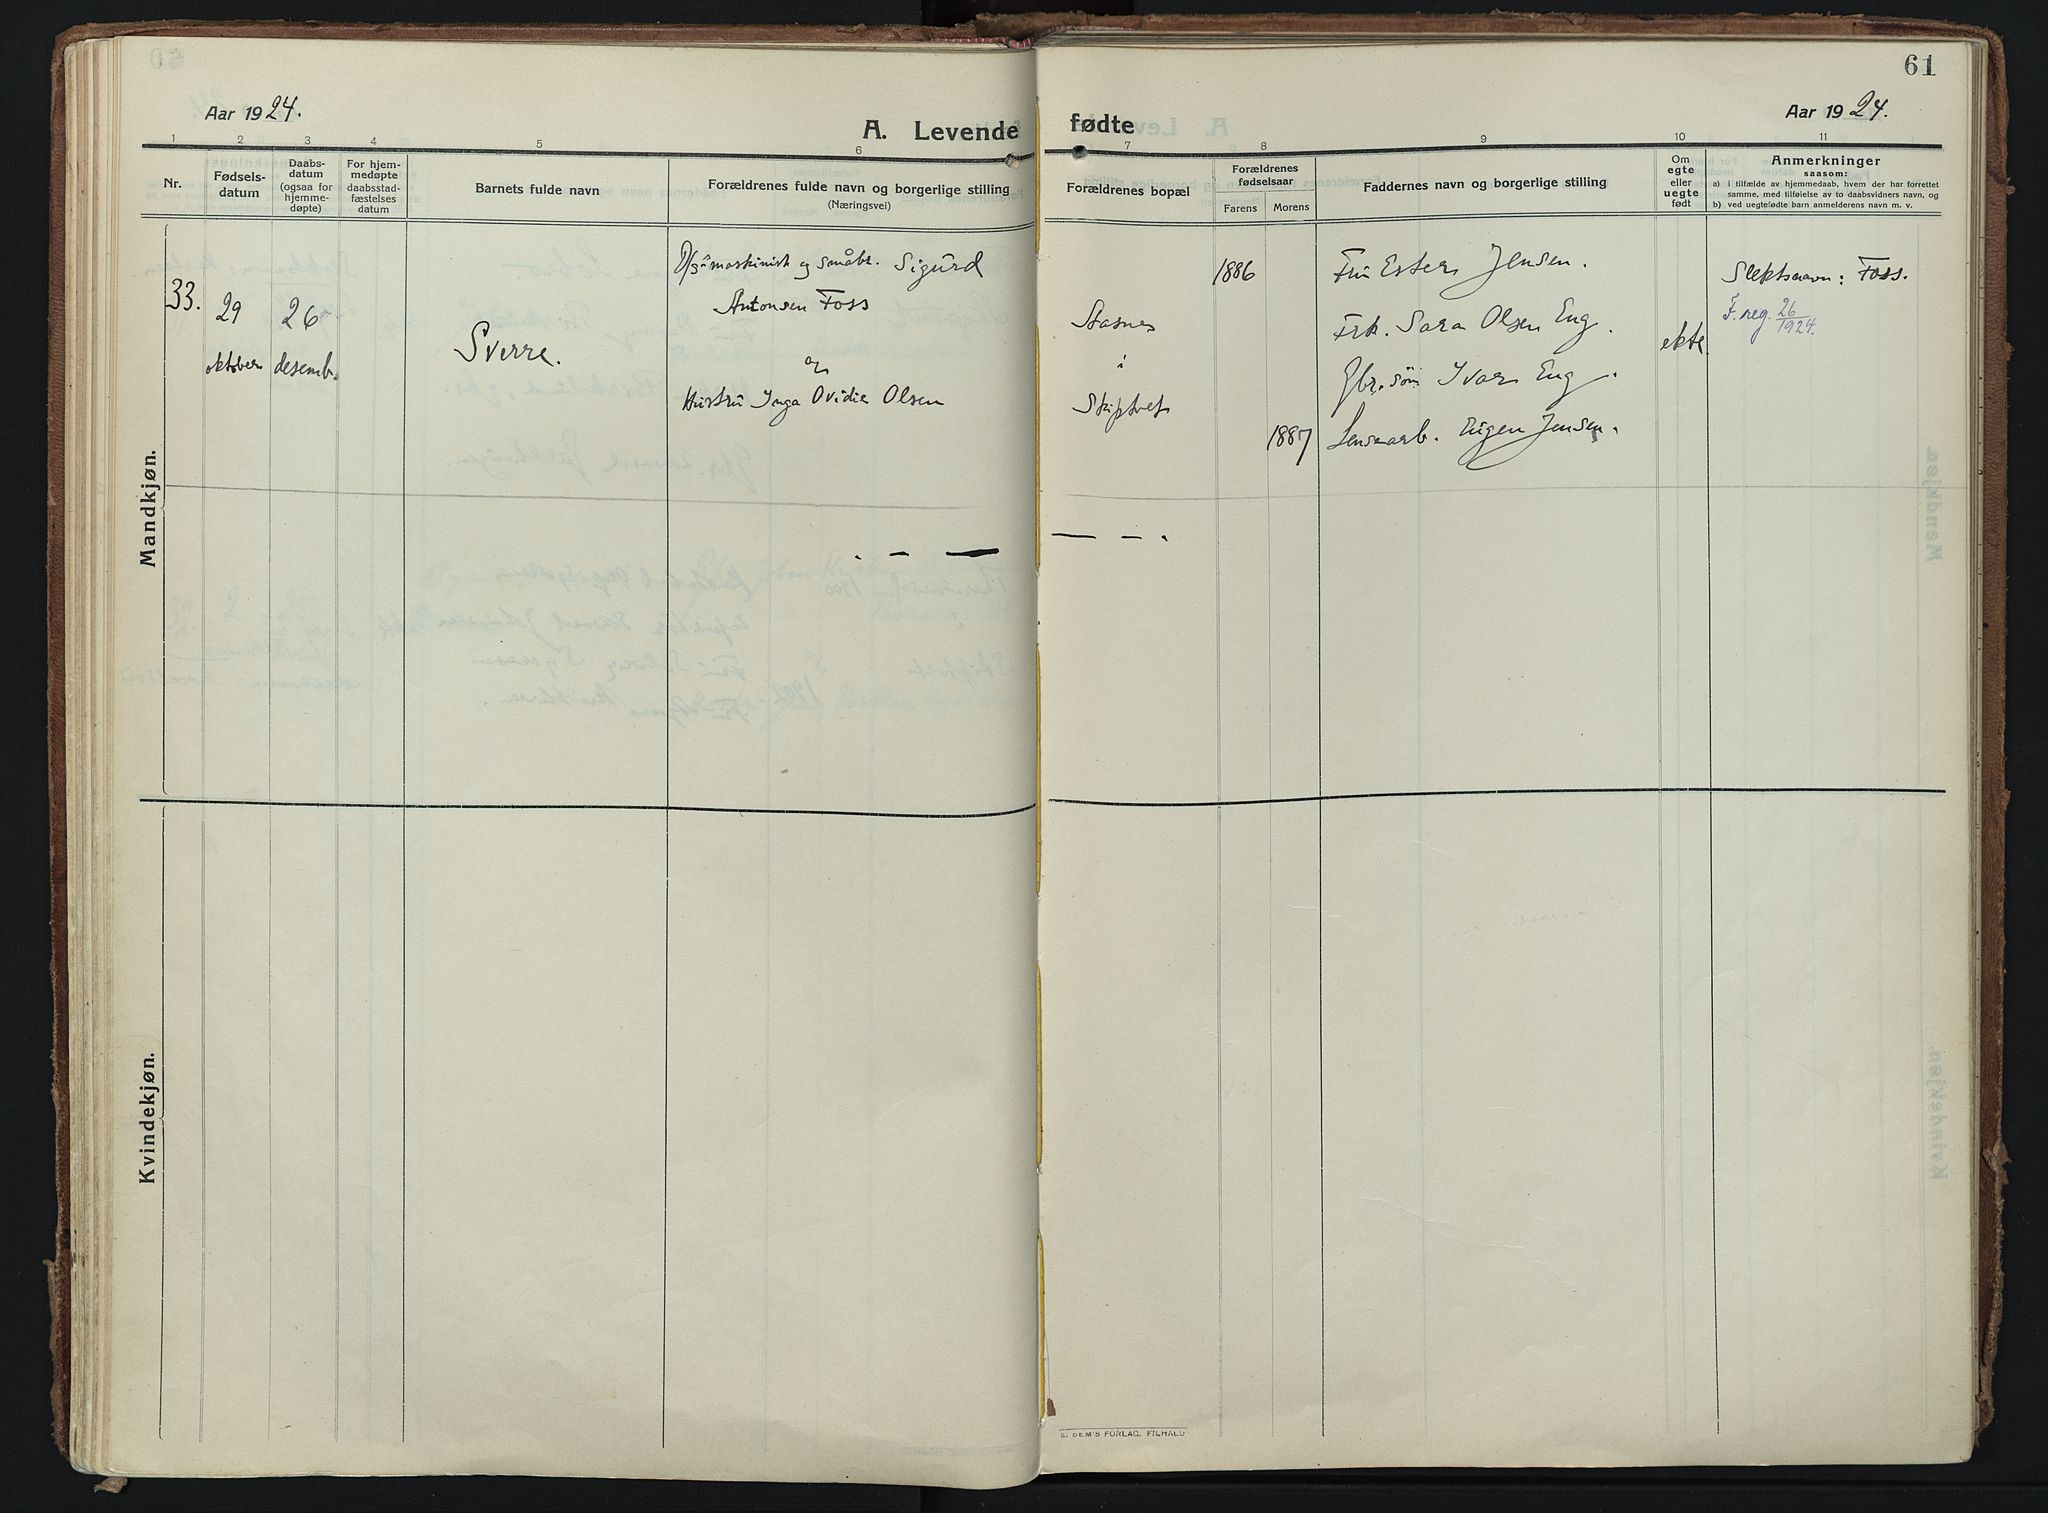 61
Aar 1924.
A. Levende fødte
Aar 1924.
1 2 3 4 5 6 7 8 9 10 11
Nr.
Fødsels-
datum
Daabs-
datum
(ogsaa for
hjemme-
døpte)
For hjem-
medøpte
daabsstad-
fæstelses
datum
Barnets fulde navn
Forældrenes fulde navn og borgerlige stilling
(Næringsvei)
Forældrenes bopæl
Forældrenes
fødselsaar
Farens Morens
Faddernes navn og borgerlige stilling
Om
egte
eller
uegte
født
Anmerkninger
saasom:
a) i tilfælde av hjemmedaab, hvem der har forrettet
samme, med tilføielse av to daabsvidners navn, og
b) ved uegtefødte barn anmelderens navn m. v.
Mandkjøn.
33.
29
oktober
26
desemb.
Sverre.
D/s maskinist og småbr. Sigurd
Antonsen Foss
og
Hustru Inga Ovidie Olsen
Aasnes
i
Skiptvet
1886
1887
Fru Ester Jensen.
Frk. Sara Olsen Eng.
Gbr.søn Ivar Eng.
Lensearb. Eugen Jensen.
ekte.
Slektsnavn: Foss.
F. reg. 26/1924.
Kvindekjøn.
E. SEM'S FORLAG. FR.HALD